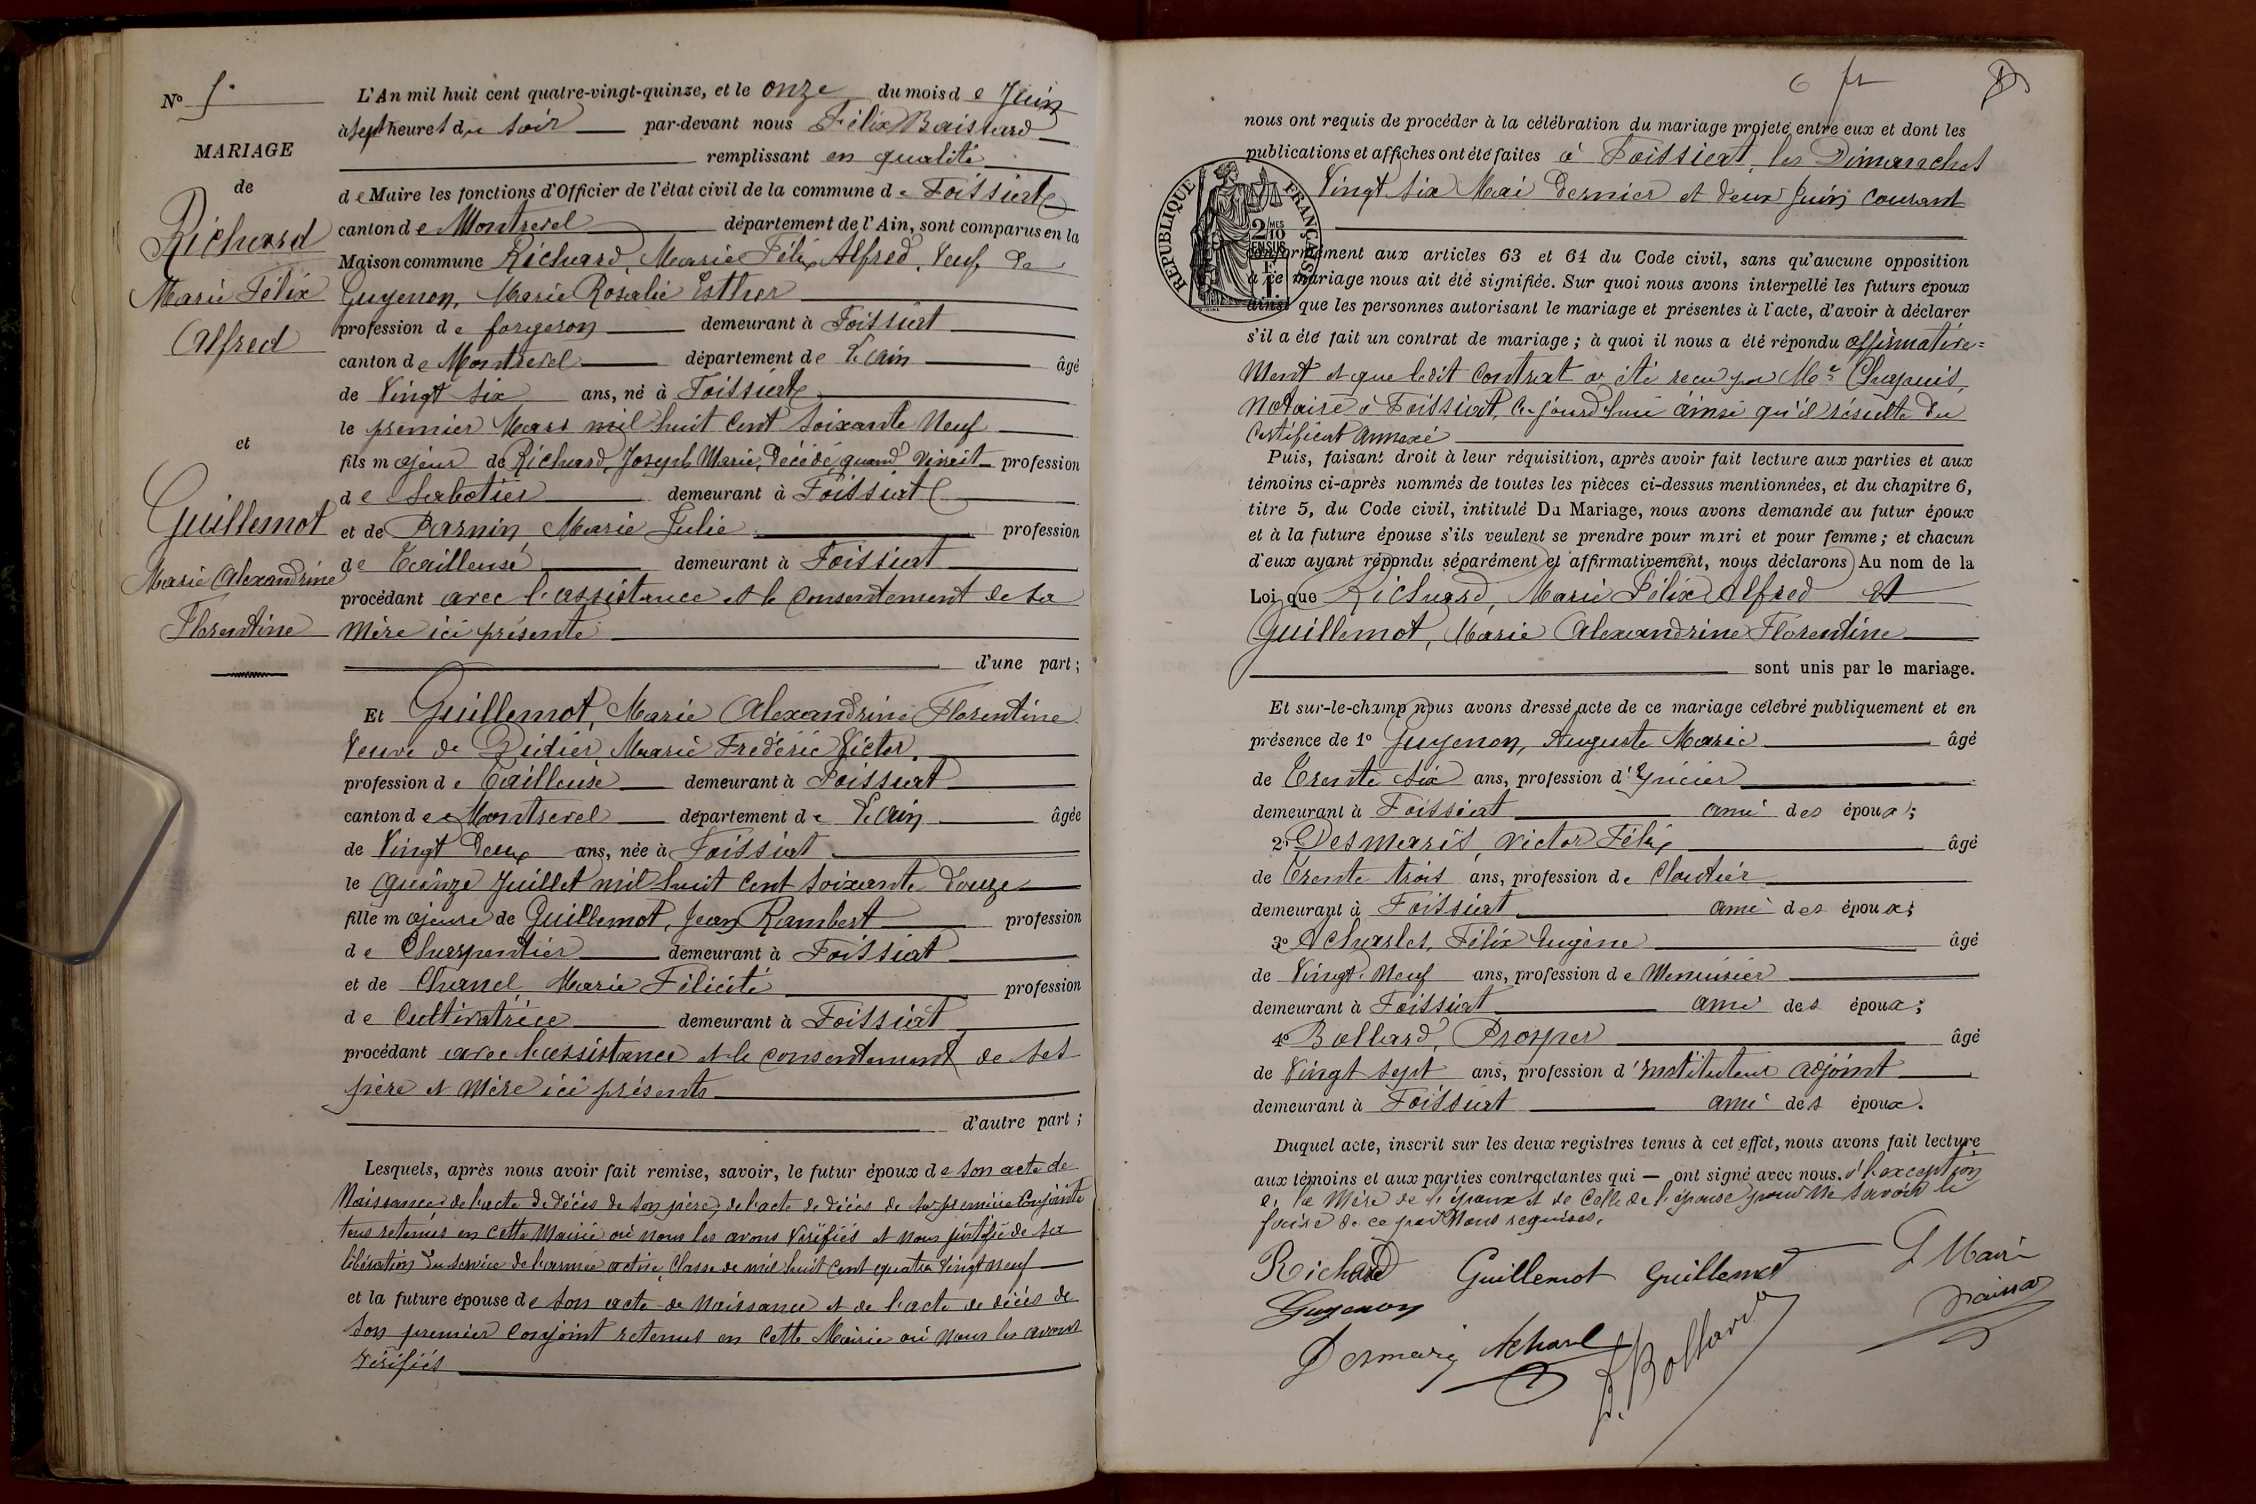 N° 5.
MARIAGE
de
Richard
Marie Félix
Alfred
et
Guillemot
Marie Alexandrine
Florentine
L'An mil huit cent quatre-vingt-quinze, et le onze du mois de Juin
à sept heures du soir par-devant nous Félix Baissard
remplissant en qualité
de Maire les fonctions d'Officier de l'état civil de la commune de Foissiat
canton de Montrevel département de l'Ain, sont comparus en la
Maison commune Richard, Marie Félix Alfred, Veuf de
Guyenon, Marie Rosalie Esther
profession de forgeron demeurant à Foissiat
canton de Montrevel département de L'Ain âgé
de Vingt six ans, né à Foissiat
le premier Mars mil huit cent soixante Neuf
fils majeur de Richard, Joseph Marie, Décédé, quand vivait profession
de Sabotier demeurant à Foissiat
et de Parnin, Marie Julie profession
de Tailleuse demeurant à Foissiat
procédant avec l'assistance et le consentement de sa
Mère ici présente
d'une part ;
Et Guillemot, Marie Alexandrine Florentine
Veuve de Didier, Marie Frédéric Victor.
profession de Tailleuse demeurant à Foissiat
canton de Montrevel département de L'Ain âgée
de Vingt Deux ans, née à Foissiat
le quinze Juillet mil huit cent soixante Douze
fille majeure de Guillemot, Jean Rambert profession
de Charpentier demeurant à Foissiat
et de Chanel Marie Félicité profession
de Cultivatrice demeurant à Foissiat
procédant avec l'assistance et le consentement de ses
père et Mère ici présents
d'autre part ;
Lesquels, après nous avoir fait remise, savoir, le futur époux de son acte de
Naissance, de l'acte de Décès de son père, de l'acte de décès de sa première Conjointe
tous retenus en cette Mairie où nous les avons Vérifiés et nous justifié de sa
libération du service de l'armée active, Classe de mil huit cent quatre Vingt neuf
et la future épouse de son acte de Naissance et de l'acte de décès de
son premier conjoint retenus en cette Mairie où nous les avons
vérifiés
6
nous ont requis de procéder à la célébration du mariage projeté entre eux et dont les
publications et affiches ont été faites à Foissiat, les Dimanches
Vingt six Mai Dernier et deux Juin courant
REPUBLIQUE FRANÇAISE
2/10
EN SUS
conformément aux articles 63 et 64 du Code civil, sans qu'aucune opposition
à ce mariage nous ait été signifiée. Sur quoi nous avons interpellé les futurs époux
ainsi que les personnes autorisant le mariage et présentes à l'acte, d'avoir à déclarer
s'il a été fait un contrat de mariage ; à quoi il nous a été répondu affirmative=
Ment et que ledit contrat a été reçu par Me Chapuis,
Notaire à Foissiat, ce jourd'hui ainsi qu'il résulte du
Certificat annexé
Puis, faisant droit à leur réquisition, après avoir fait lecture aux parties et aux
témoins ci-après nommés de toutes les pièces ci-dessus mentionnées, et du chapitre 6,
titre 5, du Code civil, intitulé Du Mariage, nous avons demandé au futur époux
et à la future épouse s'ils veulent se prendre pour mari et pour femme ; et chacun
d'eux ayant répondu séparément et affirmativement, nous déclarons Au nom de la
Loi que Richard, Marie Félix Alfred et
Guillemot, Marie Alexandrine Florentine
sont unis par le mariage.
Et sur-le-champ nous avons dressé acte de ce mariage célébré publiquement et en
présence de 1° Guyenon, Auguste Marie âgé
de Trente six ans, profession d'Epicier
demeurant à Foissiat ami des époux ;
2° Desmaris, Victor Félix âgé
de Trente trois ans, profession de Cloutier
demeurant à Foissiat ami des époux ;
3° Acharles, Félix Eugène âgé
de Vingt-Neuf ans, profession de Menuisier
demeurant à Foissiat ami des époux ;
4° Bollard, Prosper âgé
de Vingt sept ans, profession d'instituteur adjoint
demeurant à Foissiat ami des époux.
Duquel acte, inscrit sur les deux registres tenus à cet effet, nous avons fait lecture
aux témoins et aux parties contractantes qui — ont signé avec nous. à l'exception
de la Mère de l'époux et de Celle de l'épouse pour ne savoir le
faire de ce par Nous requises.
Richard Guillemot Guillemot L Maire
Guyenon Baissard
Desmaris Acharl P. Bollard